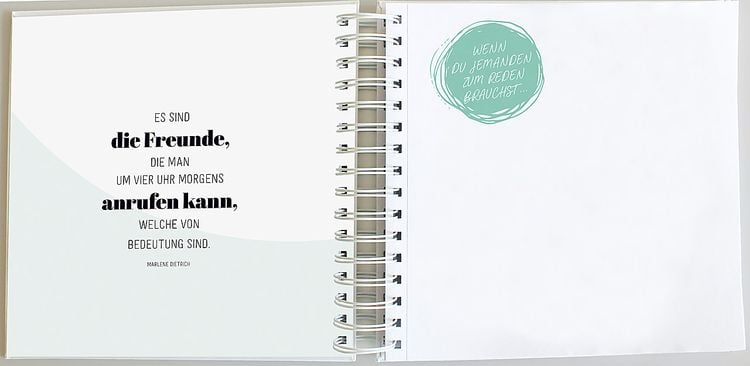 ES SIND
die Freunde,
DIE MAN
UM VIER UHR MORGENS
anrufen kann,
WELCHE VON
BEDEUTUNG SIND.
MARLENE DIETRICH
WENN
DU JEMANDEN
ZUM REDEN
BRAUCHST...